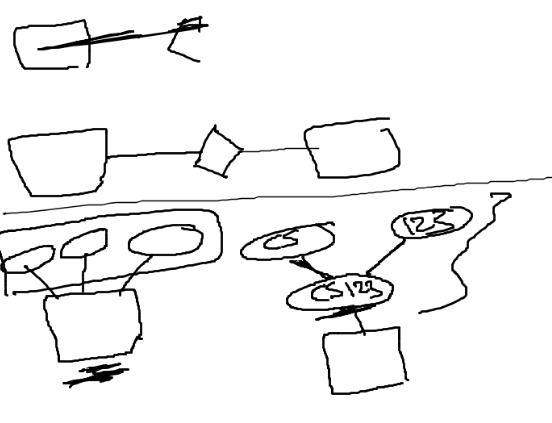 CS 123
CS123